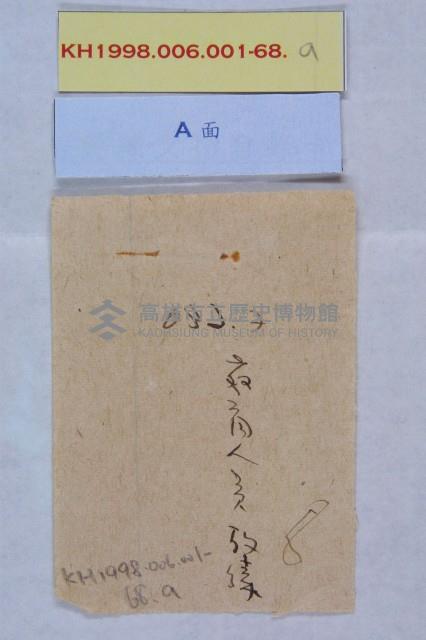 KH1998.006.001-68. a
A 面
高雄市立歷史博物館
KAOHSIUNG MUSEUM OF HISTORY
人員 致
KH1998.006.001-
68.a